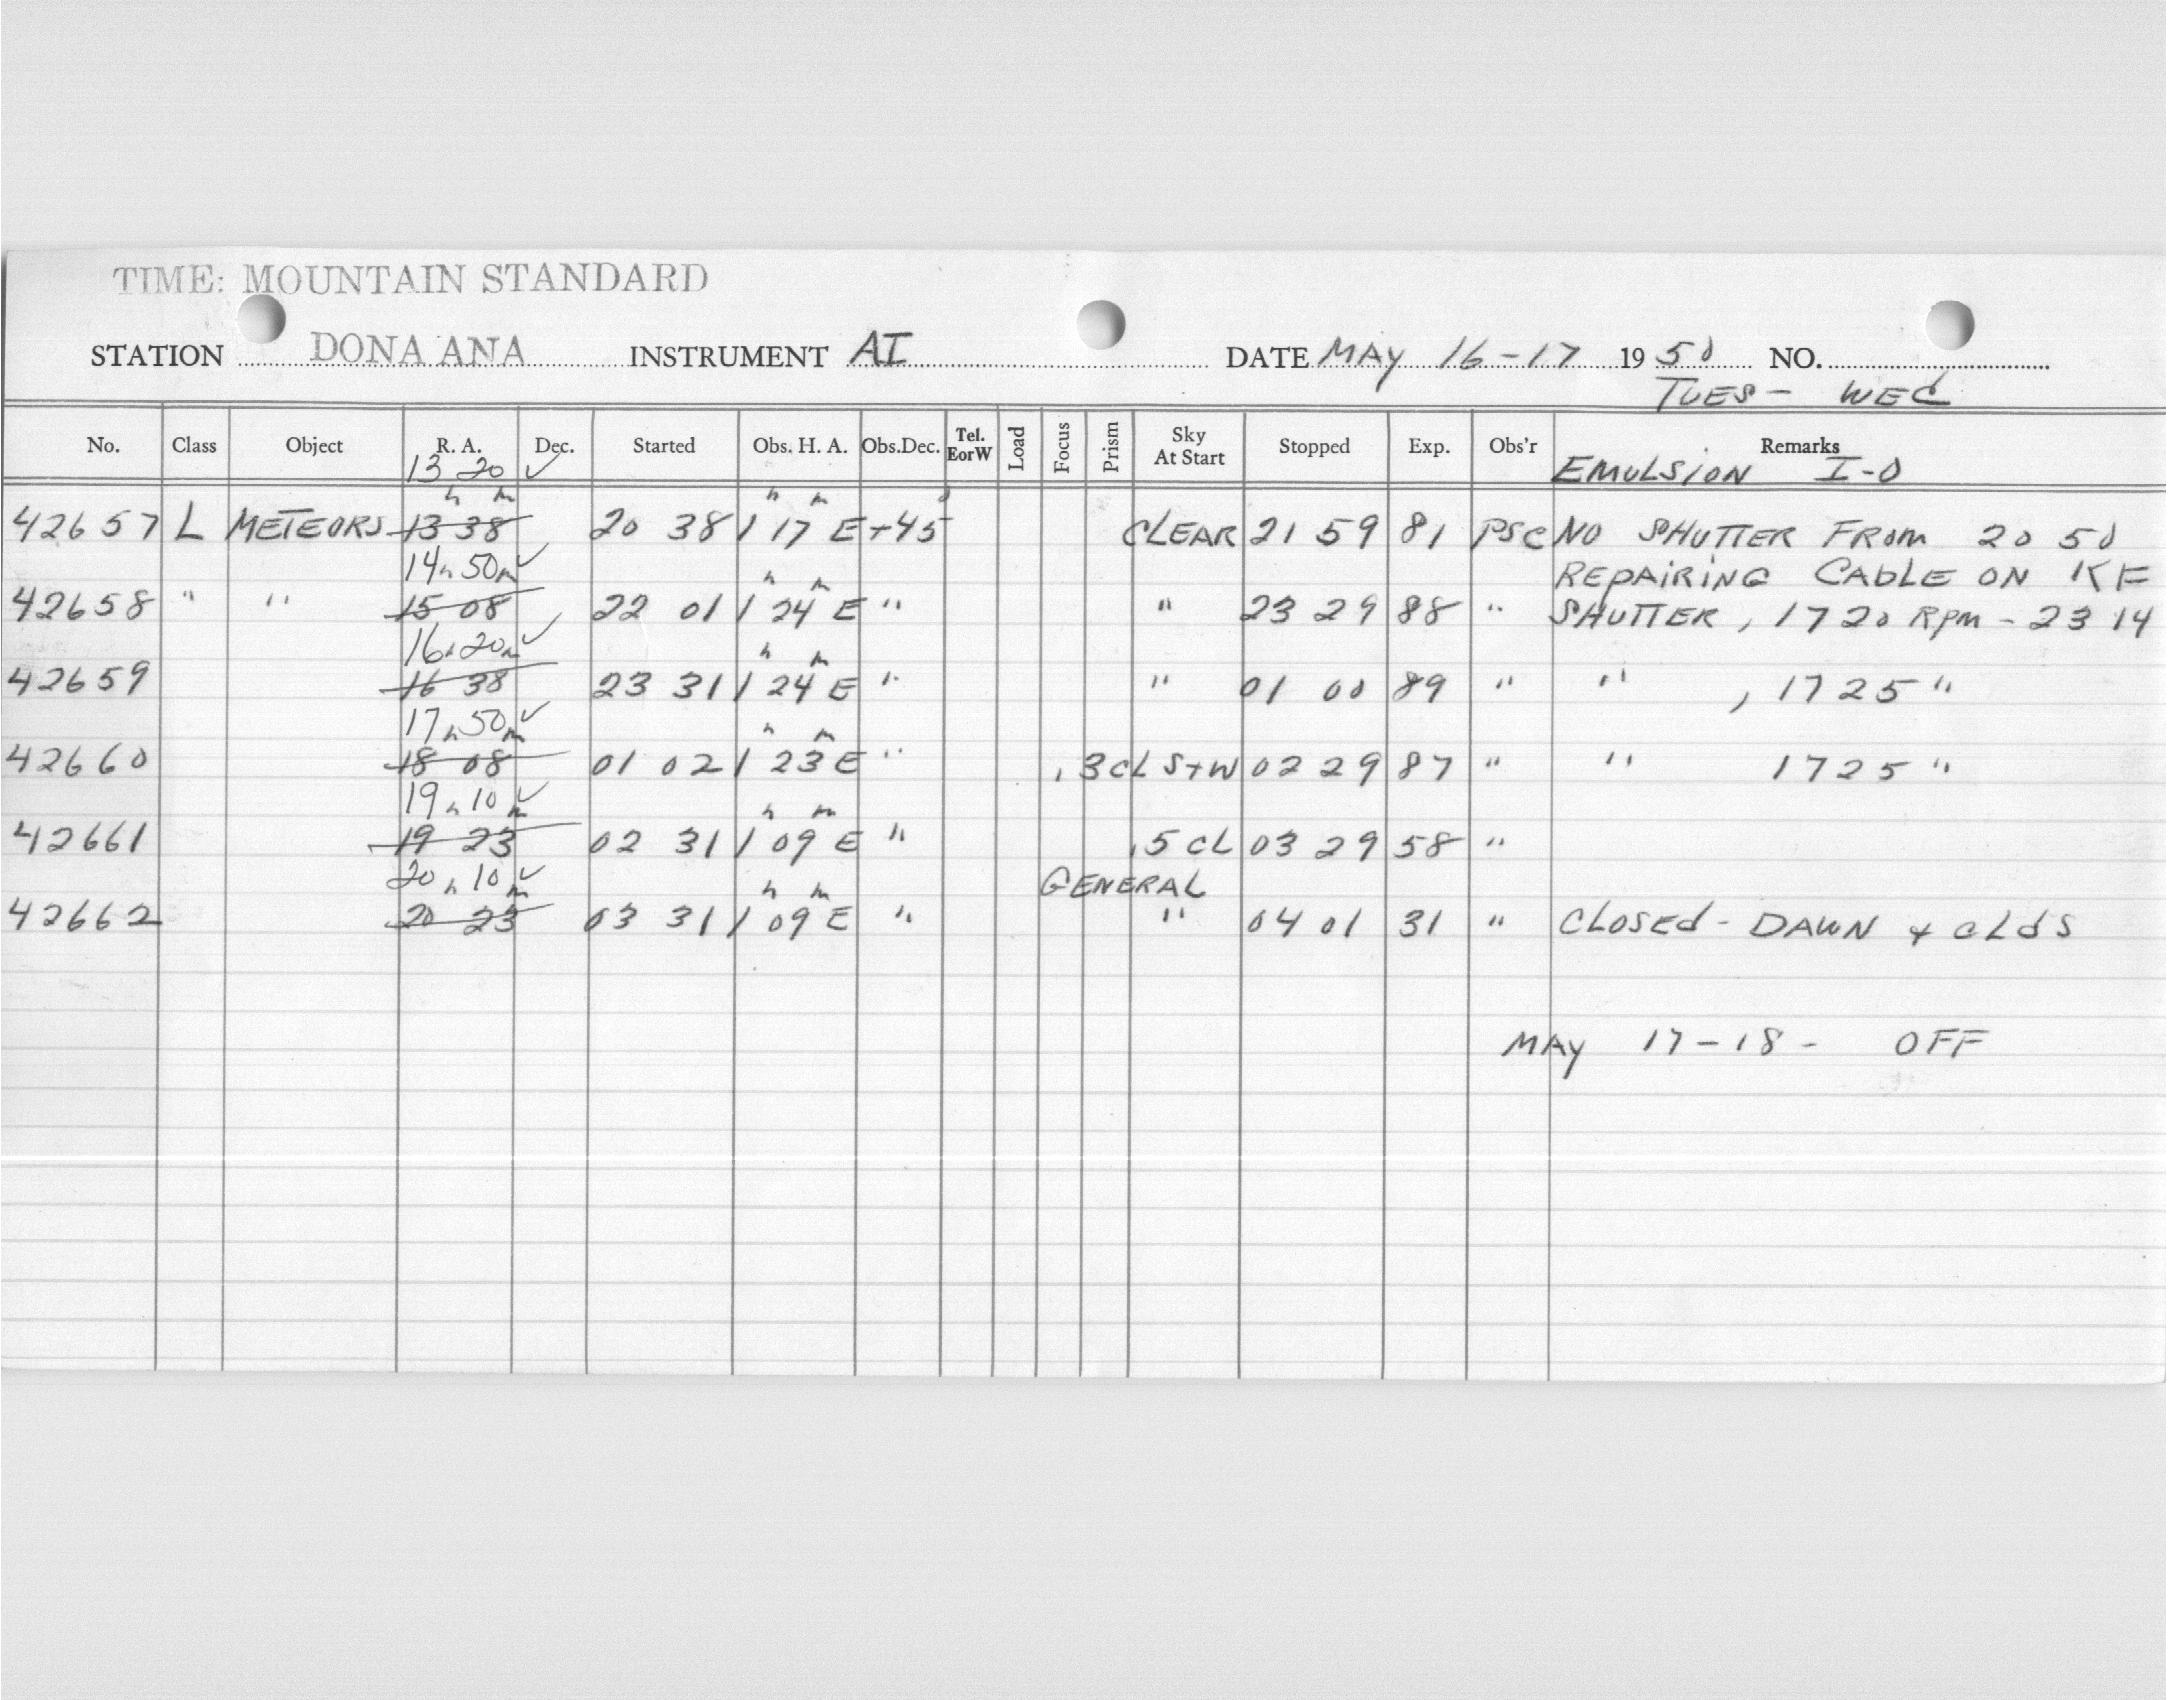 TIME: MOUNTAIN STANDARD
STATION DONA ANA INSTRUMENT AI DATE MAY 16-17 1950 NO.
TUES - WED
No. Class Object R. A. Dec. Started Obs. H. A. Obs.Dec. Tel. EorW Load Focus Prism Sky At Start Stopped Exp. Obs'r Remarks
13 20 ✓ EMULSION I-O
h m h m d
42657 L METEORS 13 38 20 38 1 17 E +45 CLEAR 21 59 81 PSC NO SHUTTER FROM 20 50
14h 50m ✓ h m REPAIRING CABLE ON KF
42658 " " 15 08 22 01 1 24 E " " 23 29 88 " SHUTTER, 1720 RPM - 23 14
16h 20m ✓ h m
42659 16 38 23 31 1 24 E " " 01 00 89 " " , 1725 "
17h 50m ✓ h m
42660 18 08 01 02 1 23 E " .3 CL S+W 02 29 87 " " 1725 "
19h 10m ✓ h m
42661 19 23 02 31 1 09 E " .5 CL 03 29 58 "
20h 10m ✓ h m GENERAL
42662 20 23 03 31 1 09 E " " 04 01 31 " CLOSED - DAWN + CLDS
MAY 17-18 - OFF